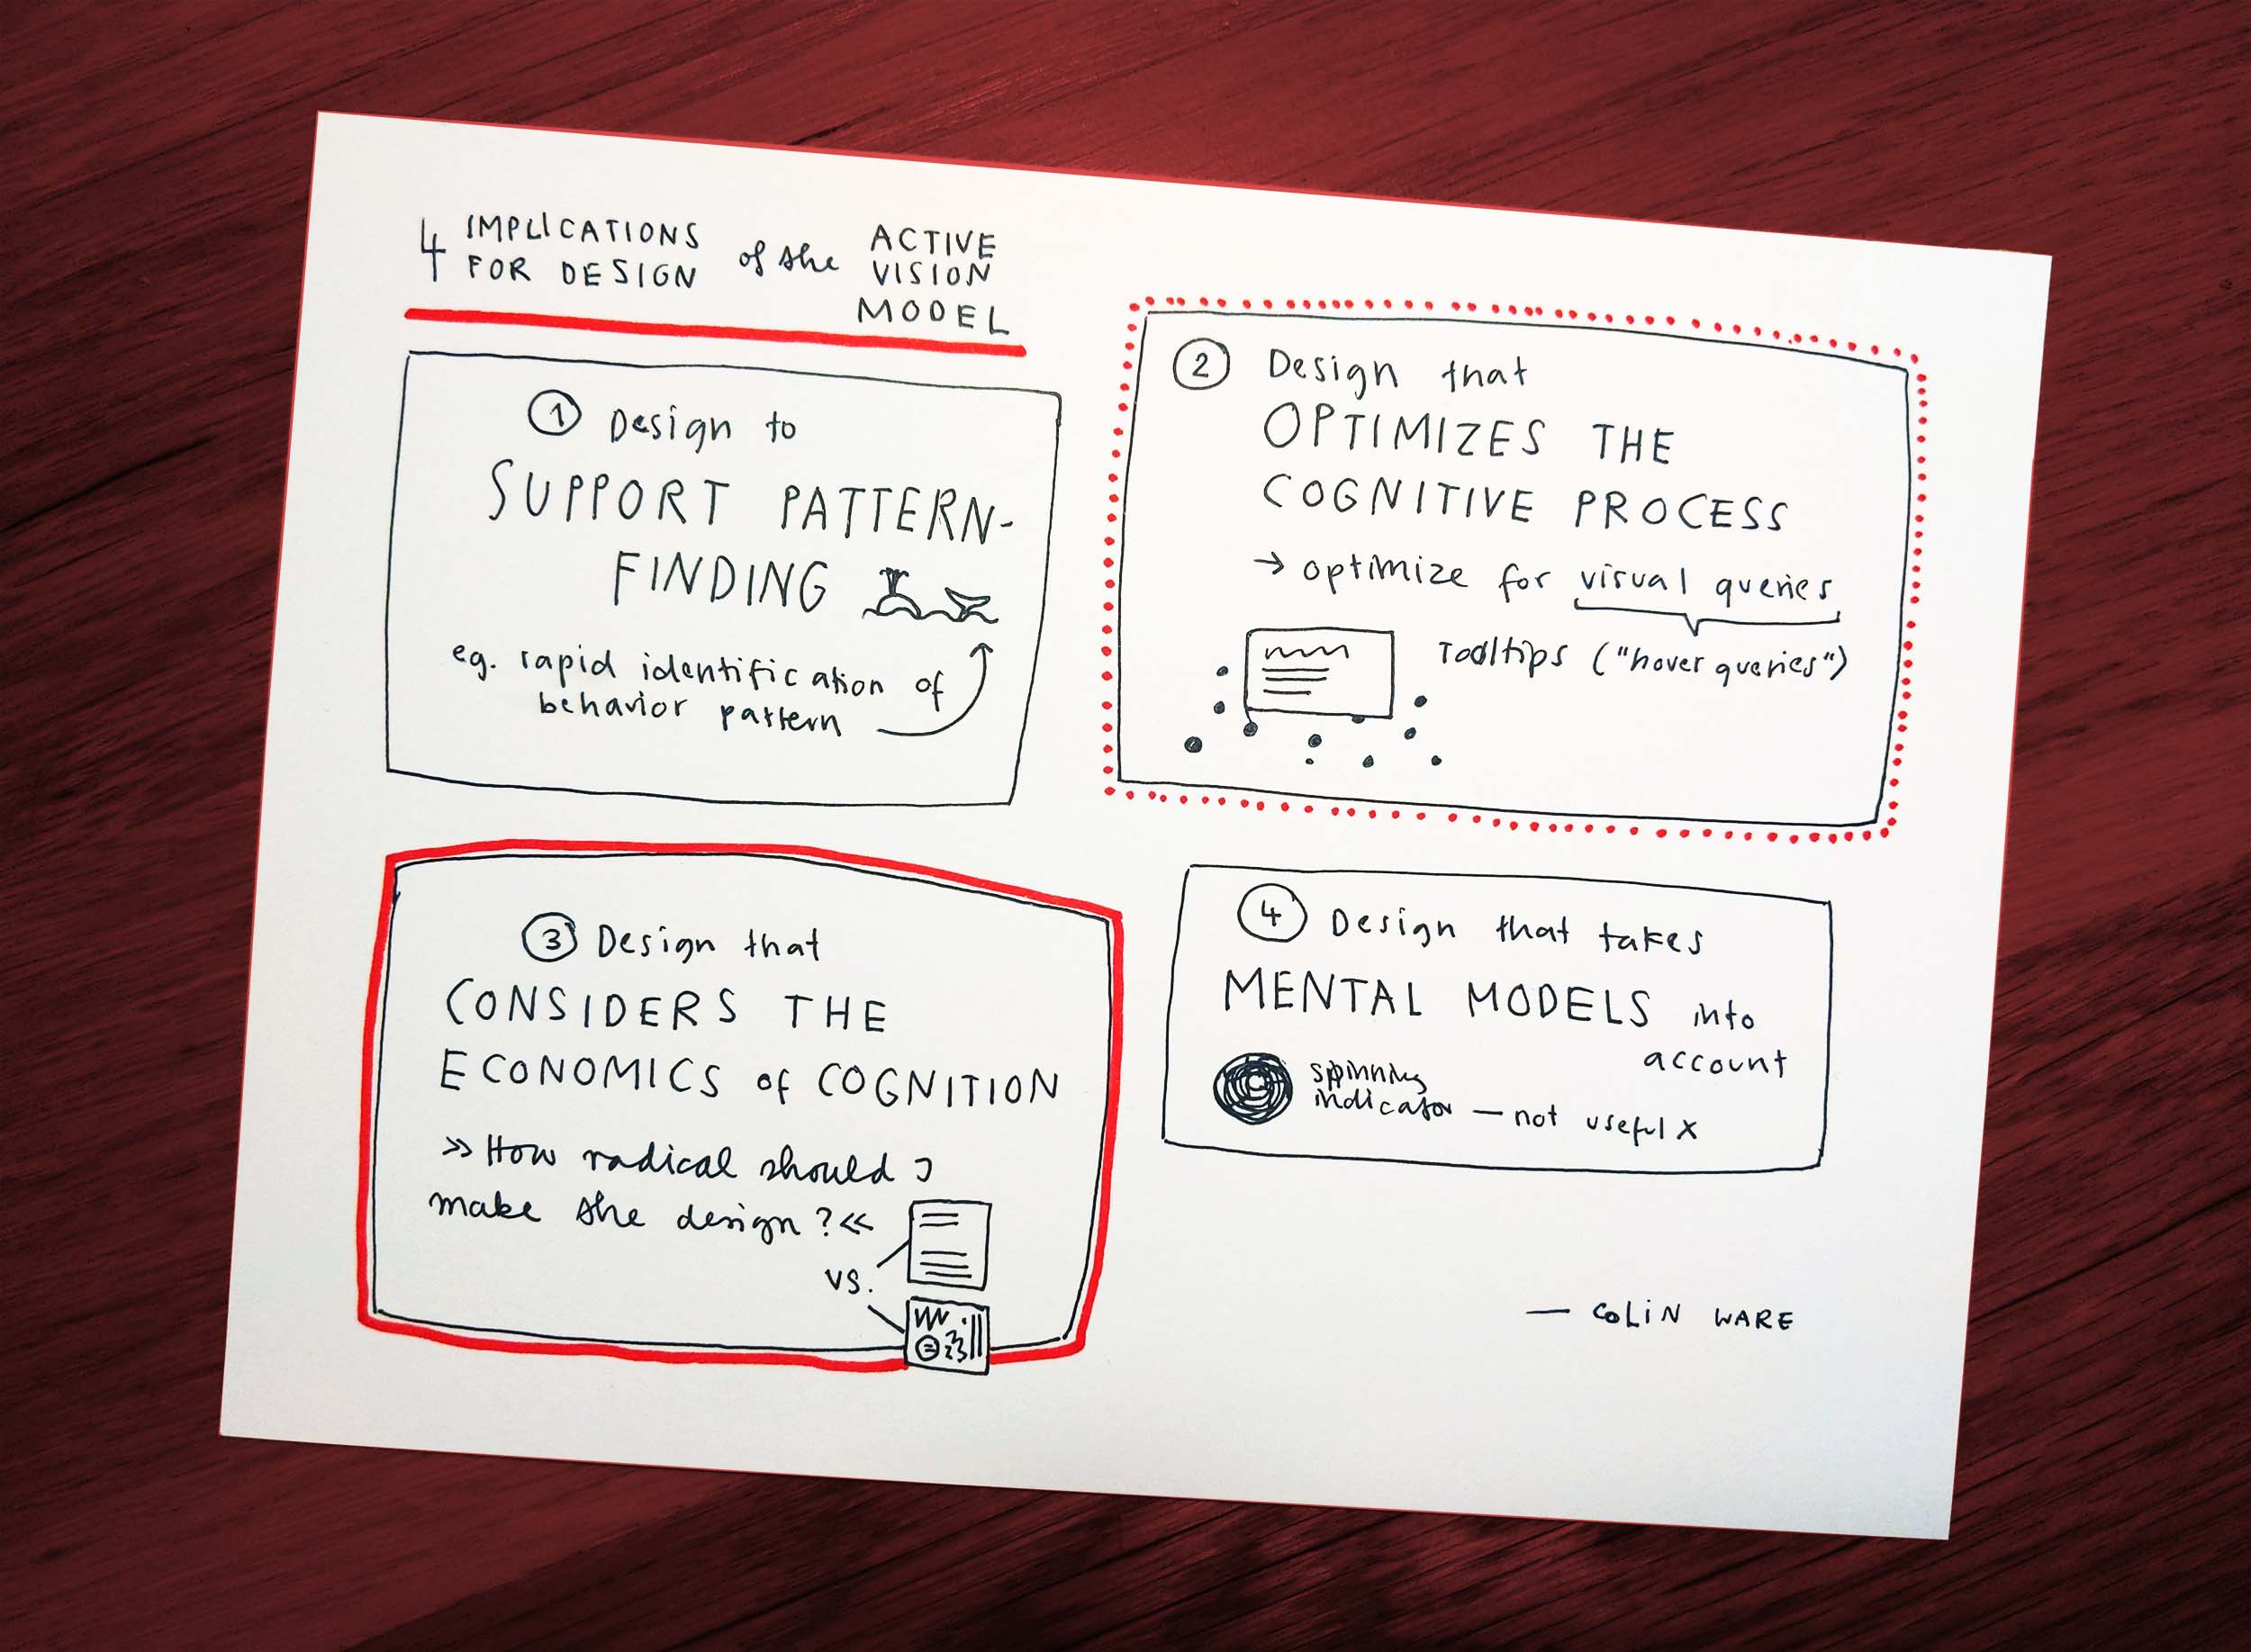 4 IMPLICATIONS FOR DESIGN of the ACTIVE VISION MODEL
① Design to
SUPPORT PATTERN-
FINDING
eg. rapid identification of
behavior pattern
② Design that
OPTIMIZES THE
COGNITIVE PROCESS
→ optimize for visual queries
Tooltips ("hover queries")
③ Design that
CONSIDERS THE
ECONOMICS of COGNITION
» How radical should I
make the design? «
vs.
④ Design that takes
MENTAL MODELS into
account
spinning
indicator — not useful x
— COLIN WARE